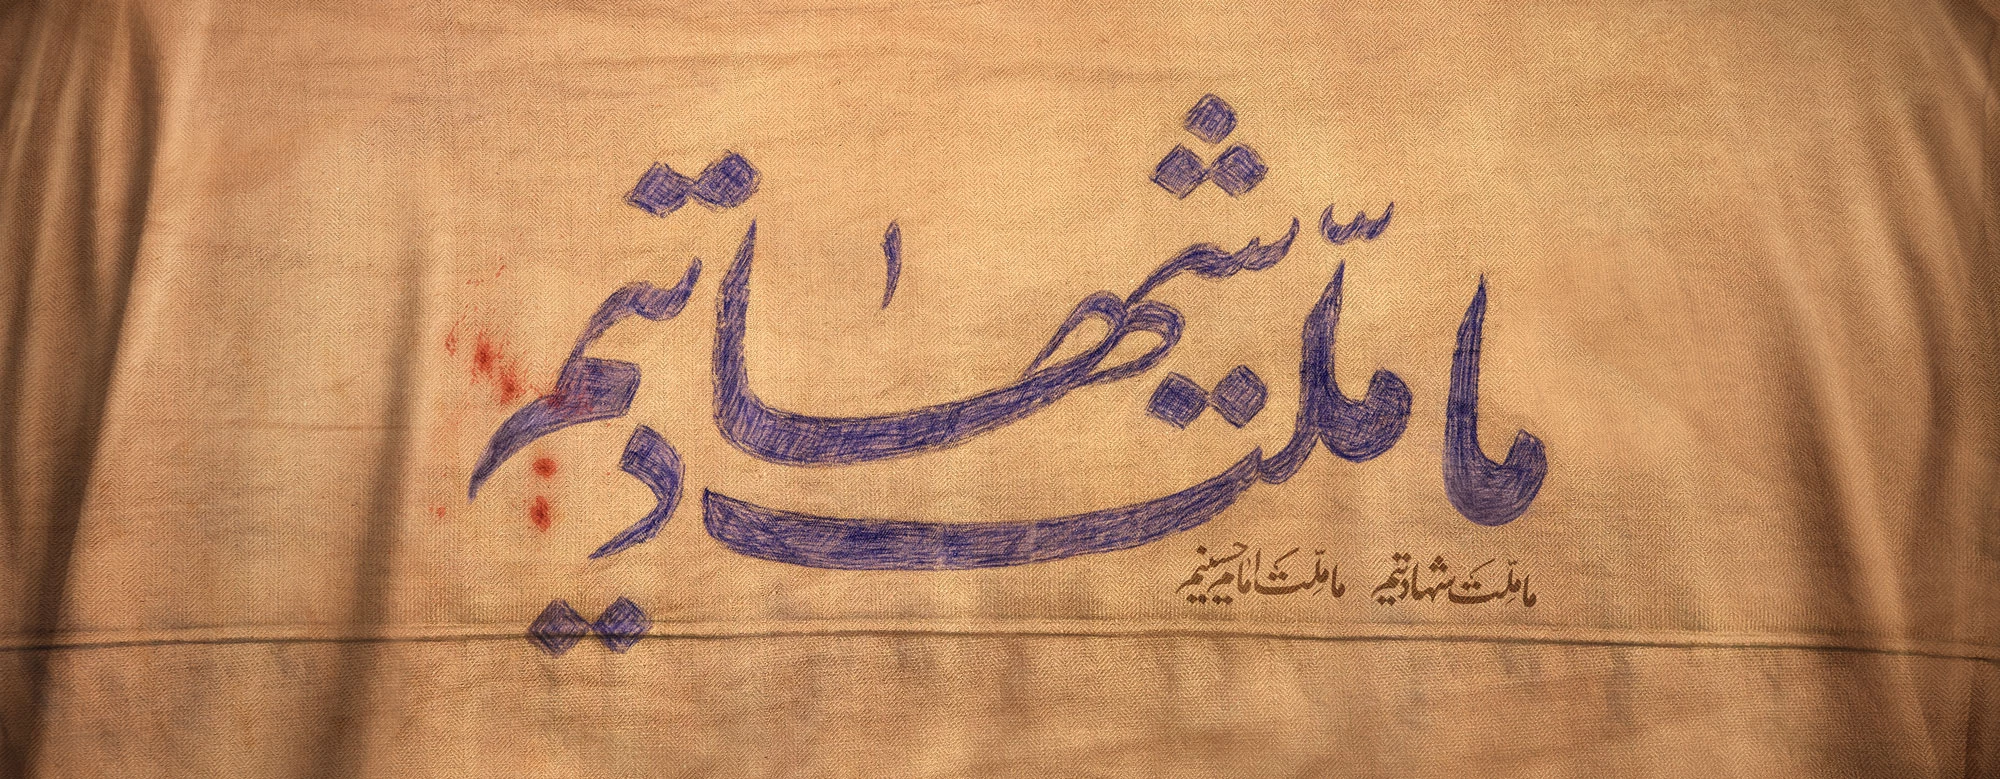 ما ملّت شهادتیم
ما ملّت شهادتیم ما ملّت امام حسینیم